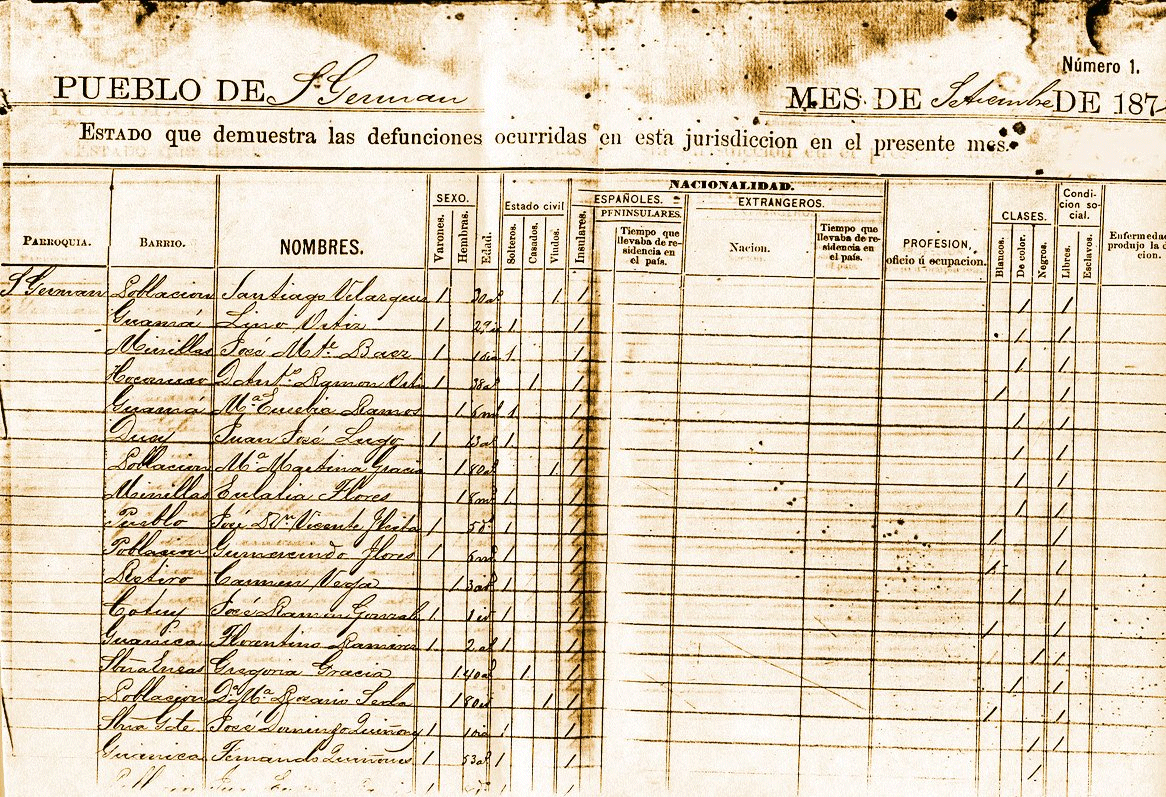 Número 1.
PUEBLO DE S. German MES DE Setiembre DE 187
ESTADO que demuestra las defunciones ocurridas en esta jurisdiccion en el presente mes.
PARROQUIA. BARRIO. NOMBRES. SEXO. Varones. Hembras. Edad. Estado civil Solteros. Casados. Viudos. NACIONALIDAD. Insulares. ESPAÑOLES. PENINSULARES. Tiempo que llevaba de residencia en el país. EXTRANGEROS. Nacion. Tiempo que llevaba de residencia en el país. PROFESION, oficio ú ocupacion. CLASES. Blancos. De color. Negros. Condicion social. Libres. Esclavos. Enfermedad produjo la cion.
S. German Poblacion Santiago Velazquez 1 30 a.s 1 1 1 1
Guamá Lino Ortiz 1 1 1 1 1
Minillas José M.te Baez 1 1 1 1 1
Ramon 1 38 a.s 1 1 1 1
Guamá M.a Eusebia Ramos 1 6 m.s 1 1 1 1
Juan José Lugo 1 1 1 1 1
Poblacion M.a Martina Gracia 1 80 a.s 1 1 1 1
Minillas Eulalia Flores 1 8 m.s 1 1 1 1
Pueblo José Vicente 1 1 1 1 1
Poblacion Gumersindo Flores 1 6 m.s 1 1 1 1
Retiro Carmen Vega 1 3 1 1 1 1
Cotuy José Ramon 1 1 1 1 1
Guanica Florentino Ramirez 1 2 a.s 1 1 1 1
Gregoria Gracia 1 40 a.s 1 1 1 1
Poblacion D.a M.a Rosario Seda 1 80 a.s 1 1 1 1
José Domingo Quiñones 1 1 1 1 1
Guanica Fernando Quiñones 1 53 a.s 1 1 1 1